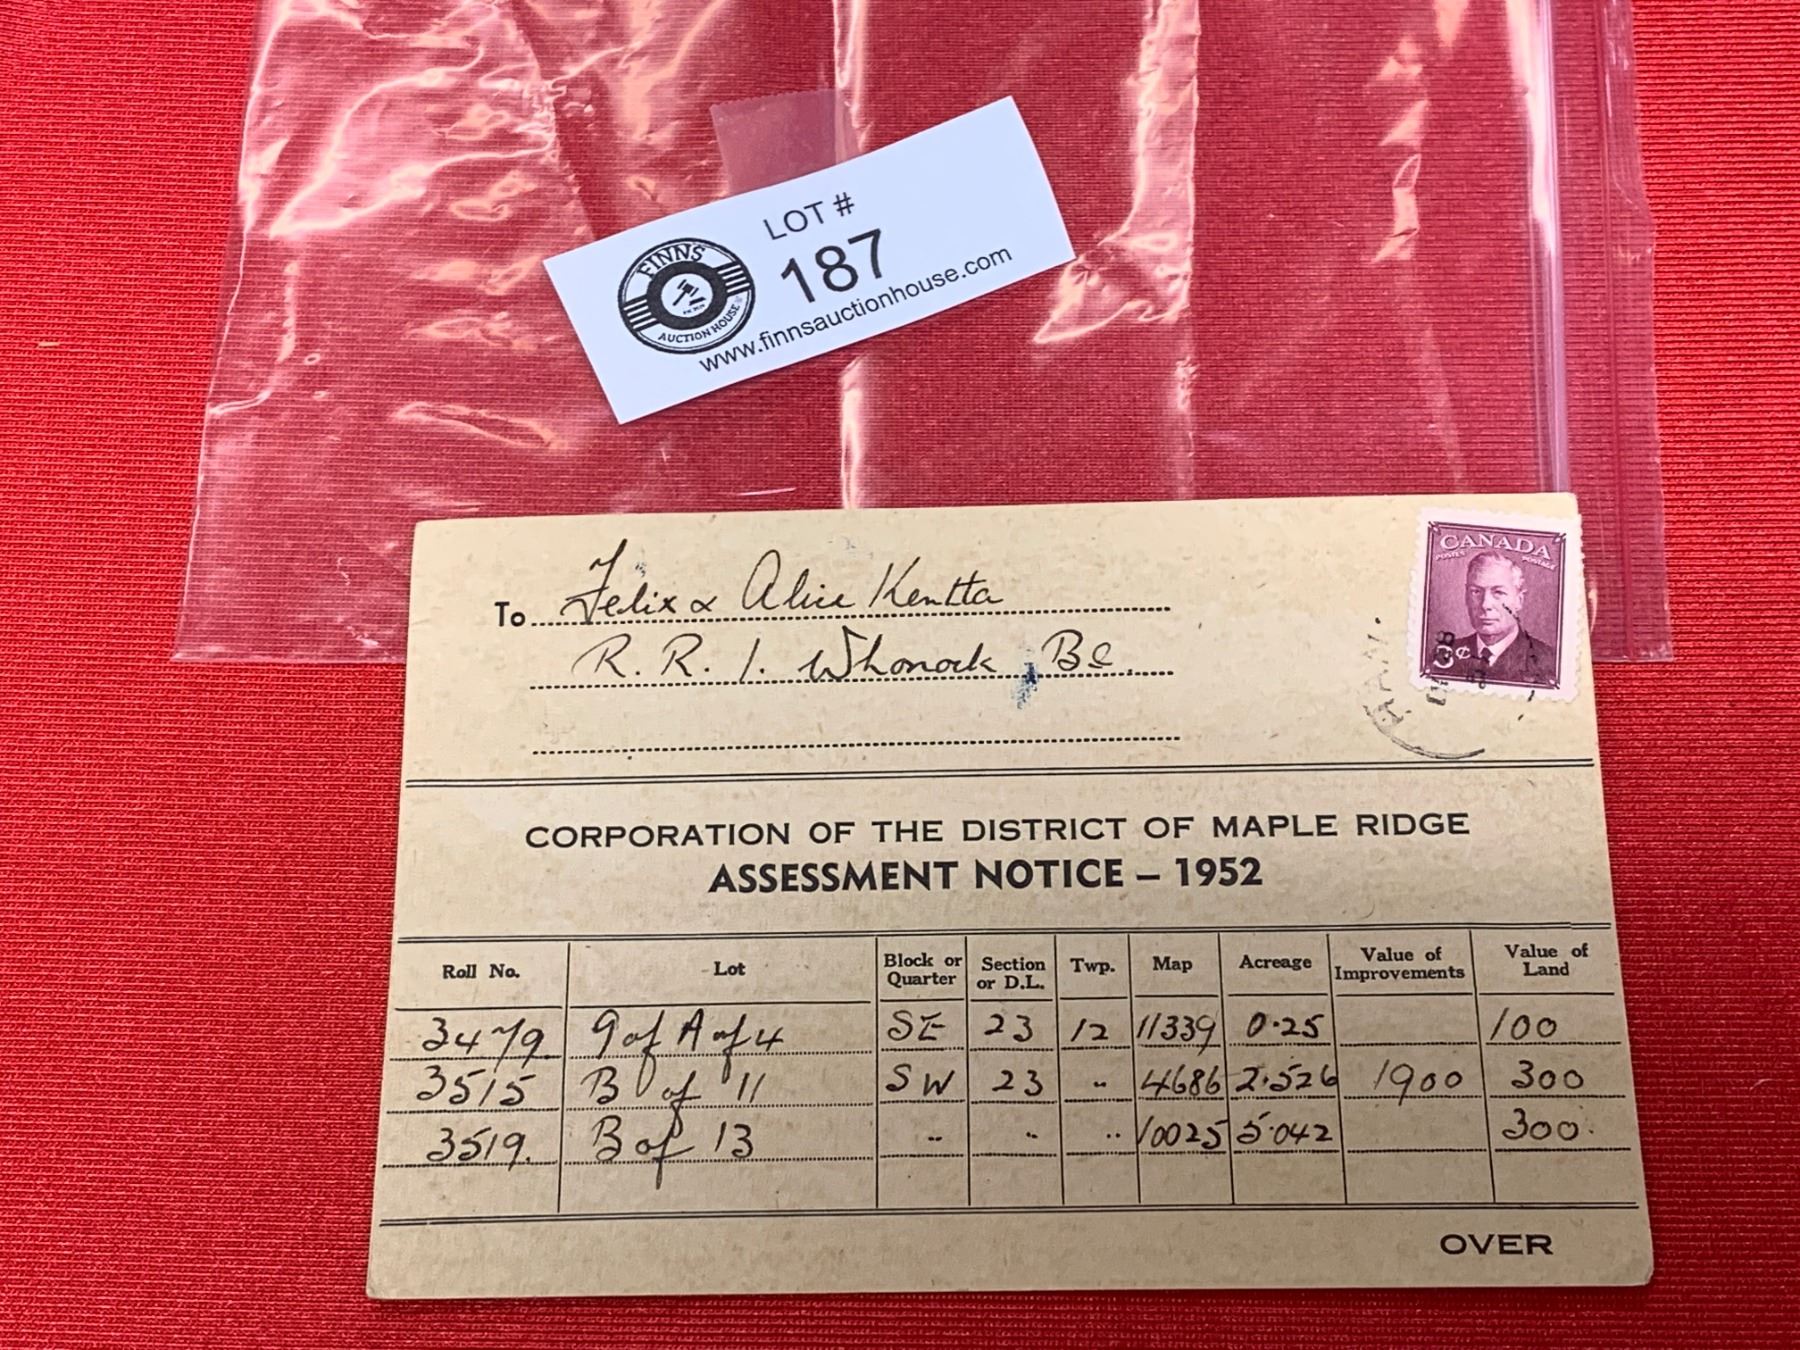 LOT #
187
FINNS
AUCTION HOUSE
www.finnsauctionhouse.com
CANADA
POSTES POSTAGE
3¢
To Felix & Alice Kentta
R. R. 1. Whonock Bc.
CORPORATION OF THE DISTRICT OF MAPLE RIDGE
ASSESSMENT NOTICE – 1952
Roll No. Lot Block or Quarter Section or D.L. Twp. Map Acreage Value of Improvements Value of Land
3479 9 of A of 4 SE 23 12 11339 0.25 100
3515 B of 11 SW 23 " 4686 2.526 1900 300
3519. B of 13 " " " 10025 5.042 300.
OVER